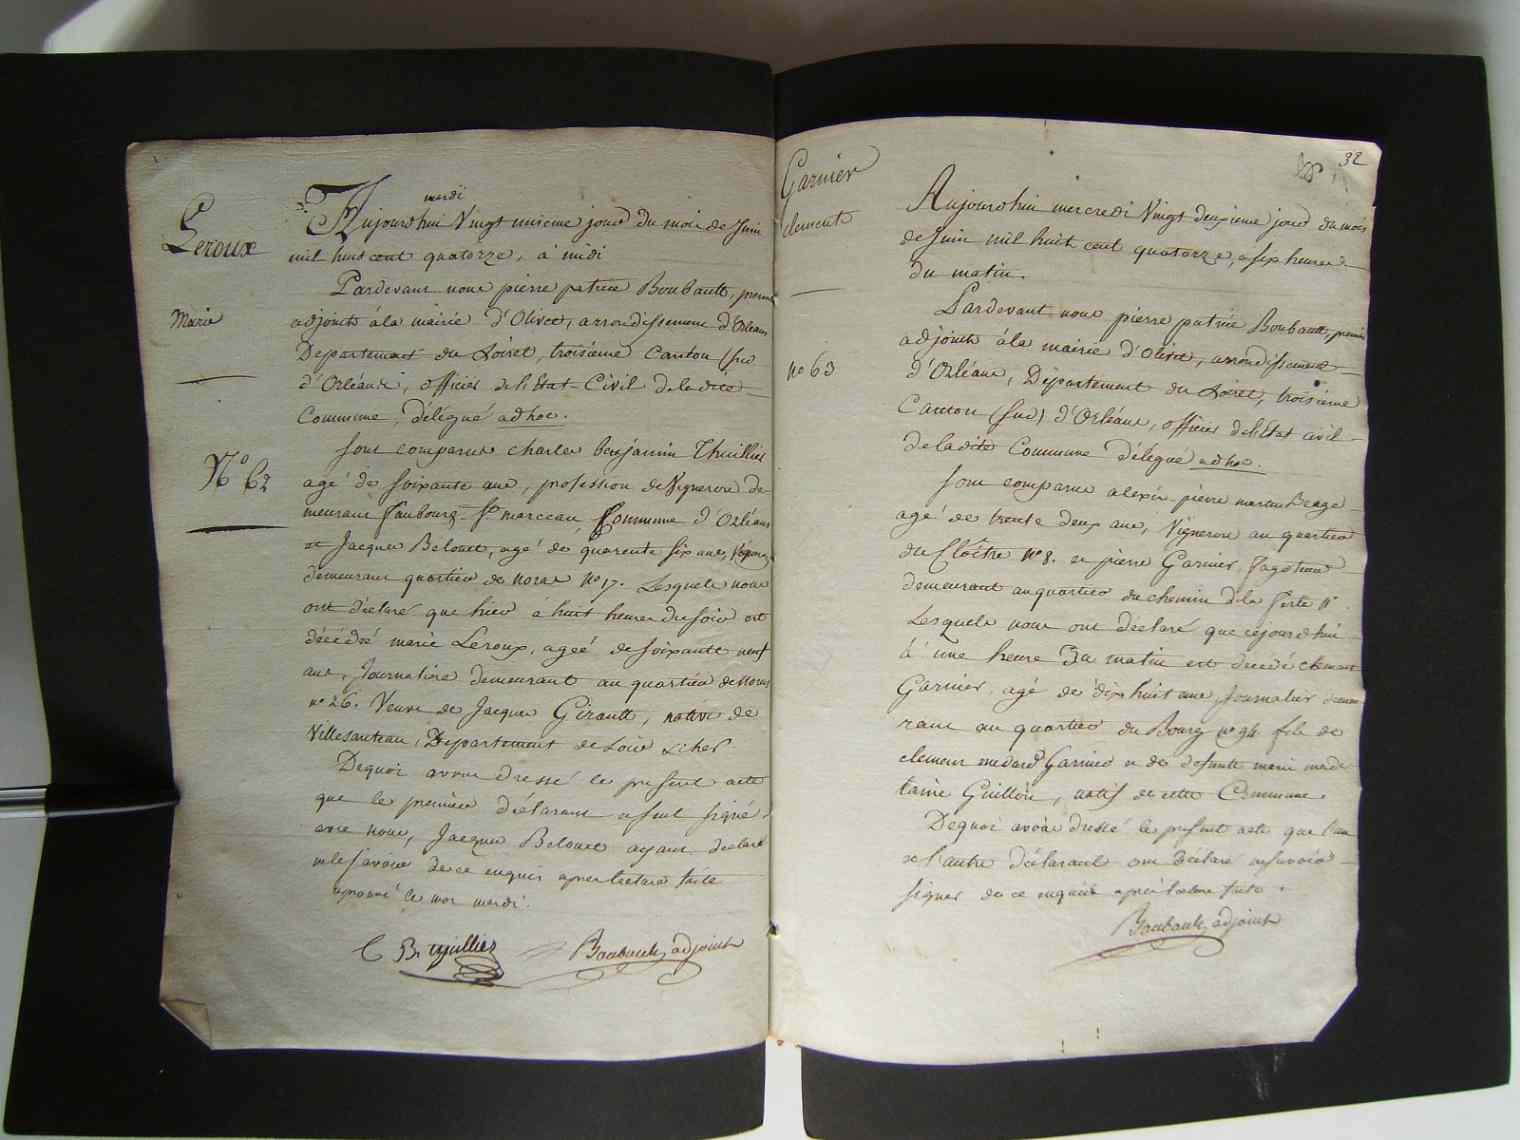 Leroux
Marie
N° 62
mardi
Aujourdhui Vingt unieme jour du mois de Juin
mil huit cent quatorze, à midi
Pardevant nous pierre patrice Boubault, premier
adjoint à la mairie d'Olivet, arrondissement d'Orléans
Departement du Loiret, troisieme Canton (sud
d'Orléans), officier de l'Etat-Civil de la dite
Commune, délégué ad hoc.
Sont comparus charles Benjamin Thuillier
agé de soixante ans, profession de Vigneron de-
meurant faubourg St marceau, Commune d'Orléans
et Jacques Belouet, agé de quarente six ans, Vigneron
demeurant quartier de noras no 17. Lesquels nous
ont déclaré que hier à huit heures du soir est
décédée marie Leroux, agée de soixante neuf
ans, Journaliere demeurant au quartier de noras
no 26. Veuve de Jacques Girault, native de
Villesauteau, Departement de Loir & cher.
Dequoi avons dressé le present acte
que le premier déclarant a seul signé
avec nous, Jacques Belouet ayant declaré
ne le savoir de ce enquis apres lecture faite
aprouvé le mot mardi.
C B Tuillier Boubault, adjoint
32
Garnier
clement
no 63
Aujourdhui mercredi Vingt deuxieme jour du mois
de Juin mil huit cent quatorze, a six heures
du matin.
Pardevant nous pierre patrice Boubault, premier
adjoint à la mairie d'Olivet, arrondissement
d'Orléans, Département du Loiret, troisieme
Canton (sud) d'Orléans, officier de l'Etat civil
de la dite Commune délégué ad hoc.
Sont comparus alexis pierre martin
agé de trente deux ans, Vigneron au quartier
du Cloître no 8. et pierre Garnier, fagoteur
demeurant au quartier du chemin de la ferté
Lesquels nous ont déclaré que cejourdhui
à une heure Du matin est decedé clement
Garnier, agé de dix huit ans, Journalier demeu
rant au quartier du Bourg no 94. fils de
clement medard Garnier et de defunte marie made
laine Guillon, natif de cette Commune.
Dequoi avons dressé le present acte que l'un
et l'autre déclarants ont déclaré ne savoir
signer de ce enquis après lecture faite.
Boubault, adjoint